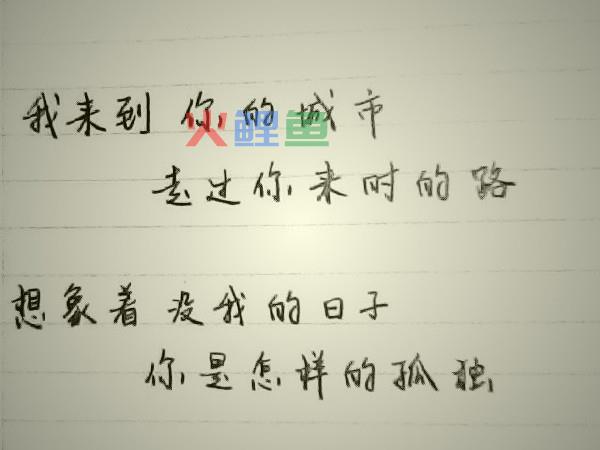 我来到你的城市
火鲤鱼
走过你来时的路
想象着没我的日子
你是怎样的孤独